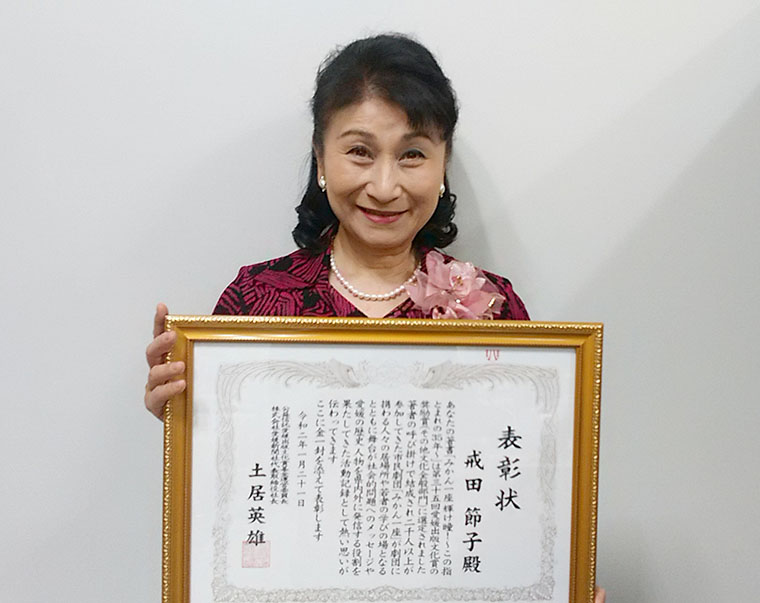 表彰状
戒田 節子殿
あなたの著書「みかん一座 輝け瞳！〜この指
とまれの35年〜」は第三十五回愛媛出版文化賞の
奨励賞（その他文化全般部門）に選定されました
著者の呼び掛けで結成され二千人以上が
参加してきた市民劇団「みかん一座」が劇団に
携わる人々の居場所や若者の学びの場となる
とともに舞台が社会的問題へのメッセージや
愛媛の歴史 人物を県内外に発信する役割を
果たしてきた活動記録として熱い思いが
伝わってきます
ここに金一封を添えて表彰します
令和二年一月二十一日
公益信託愛媛出版文化賞基金運営委員長
株式会社愛媛新聞社代表取締役社長
土居英雄